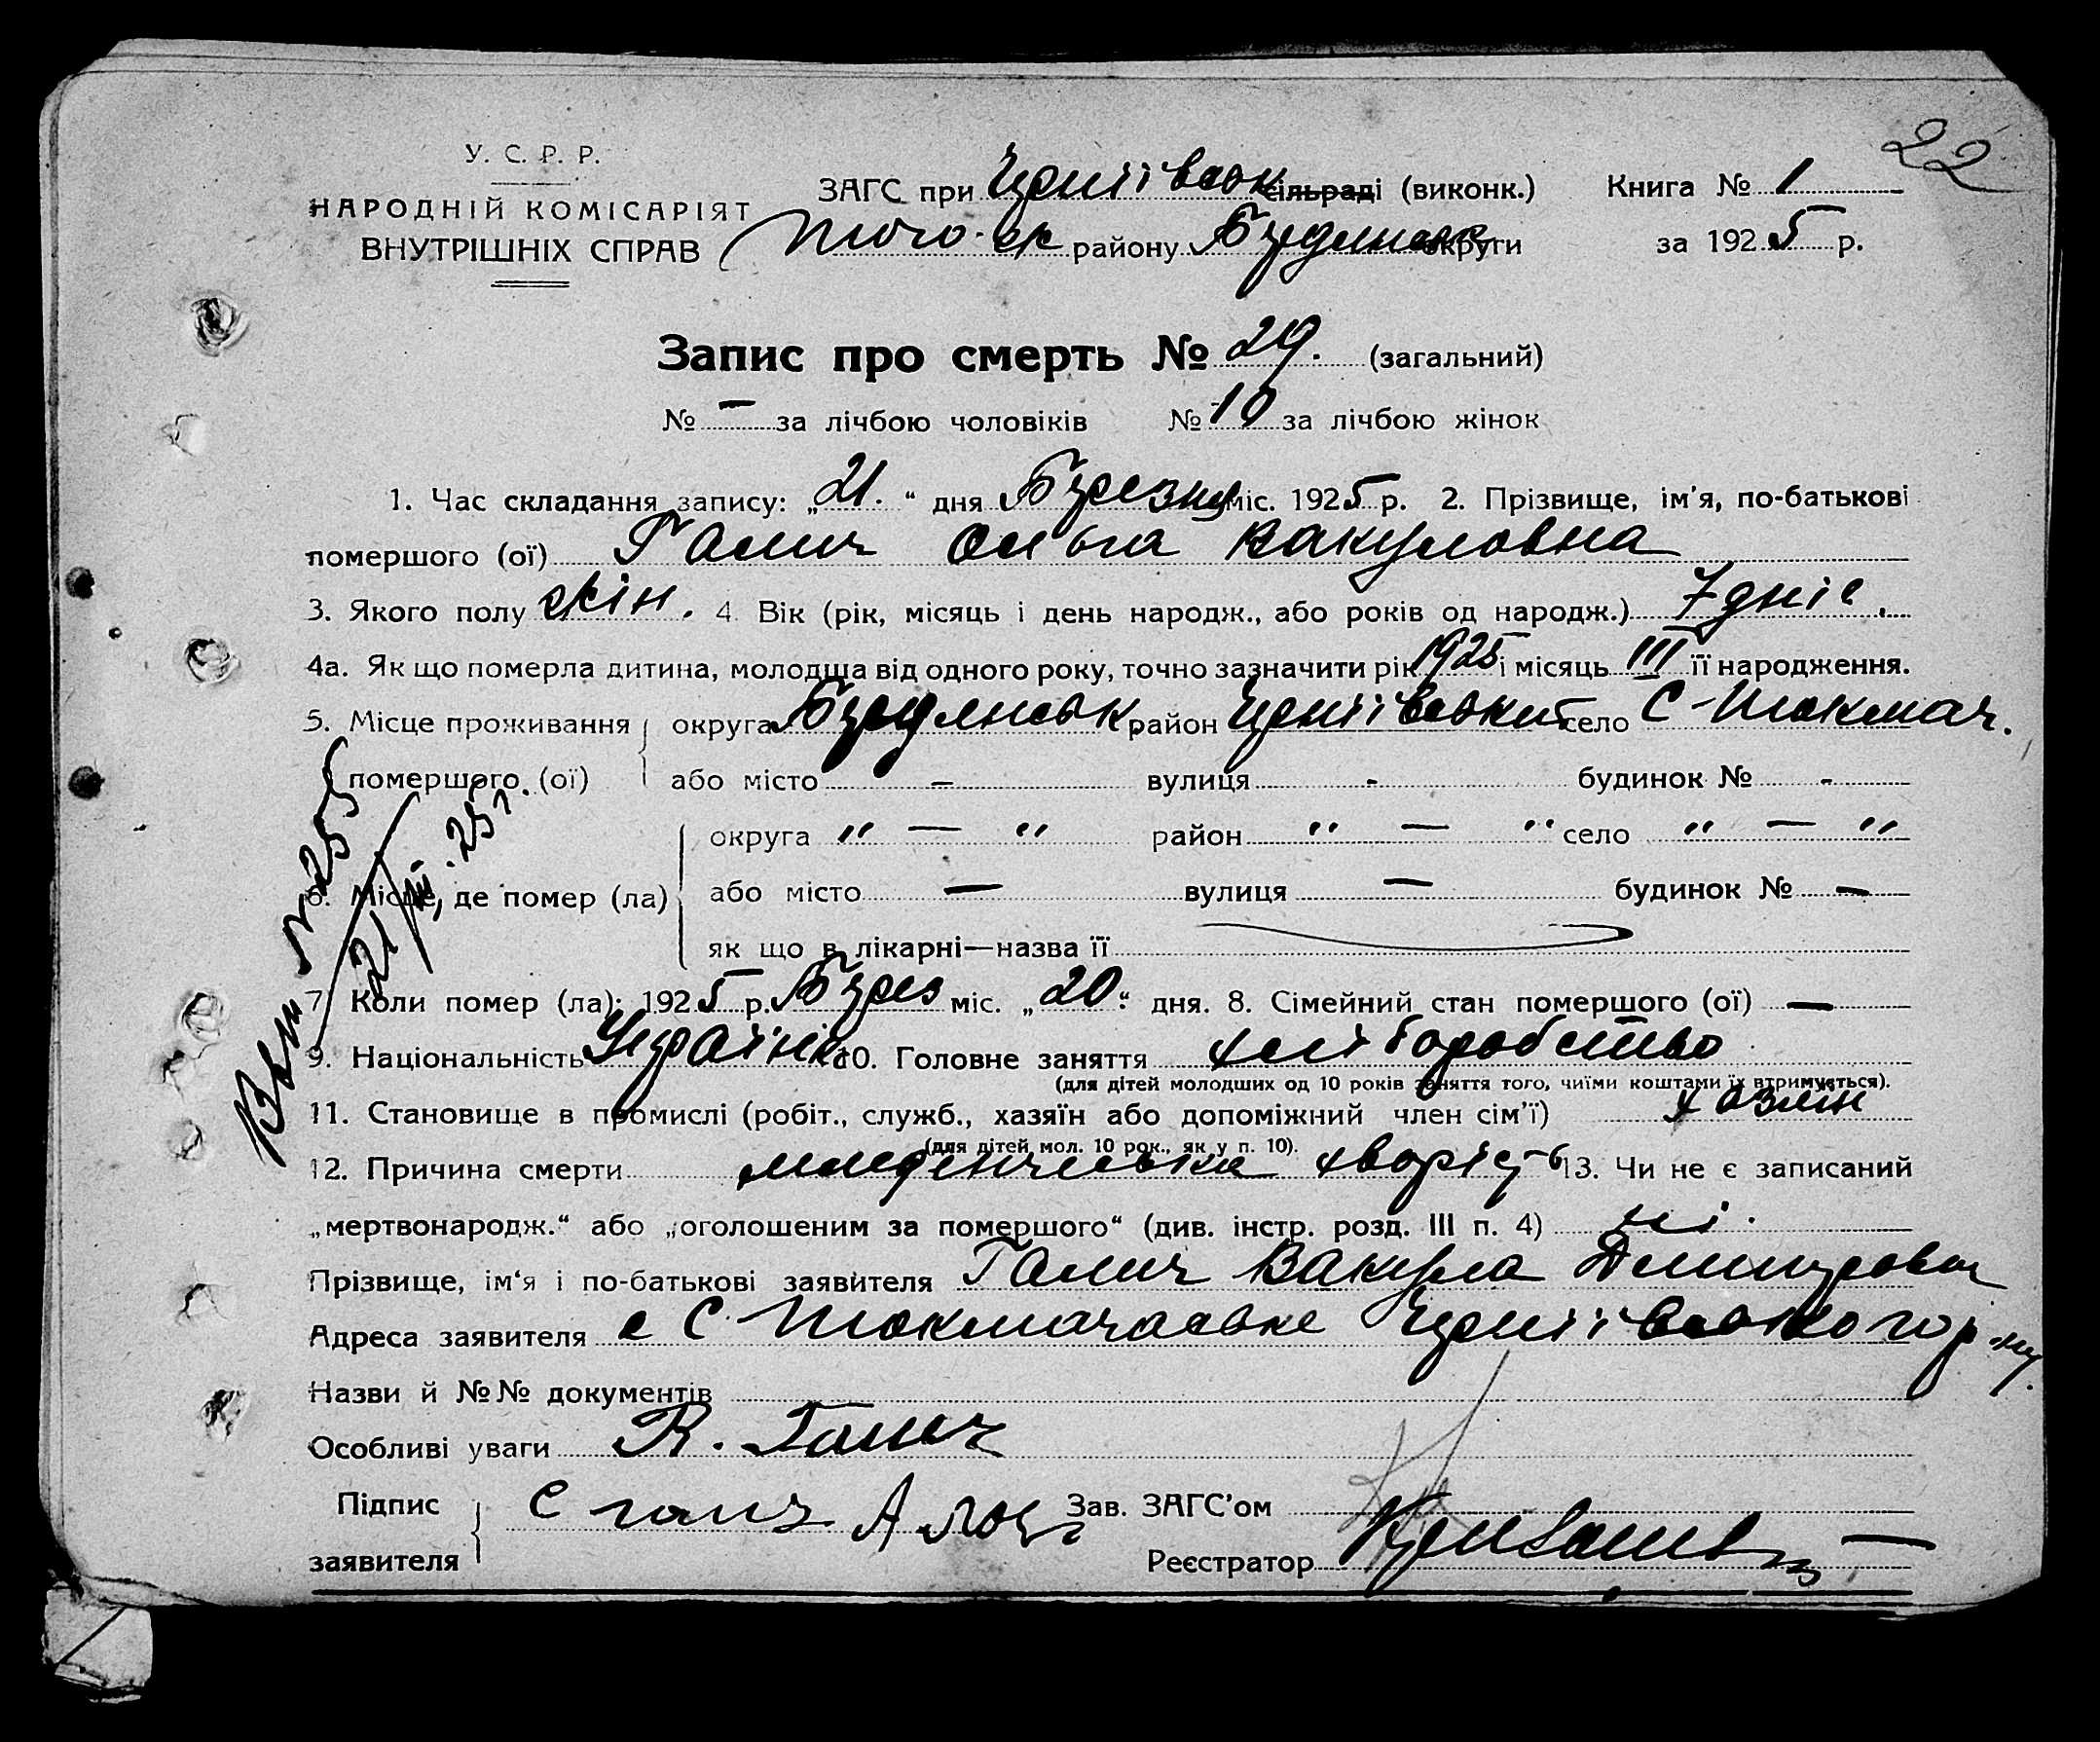 22
У. С. Р. Р.
НАРОДНІЙ КОМІСАРІЯТ
ВНУТРІШНІХ СПРАВ
ЗАГС при сільраді (виконк.) Книга № 1
району округи за 1925 р.
Запис про смерть № 29. (загальний)
№ — за лічбою чоловіків № 10 за лічбою жінок
1. Час складання запису: „21.“ дня Березня міс. 1925 р. 2. Прізвище, ім'я, по-батькові
помершого (ої) Галич Ольга Вакуловна
3. Якого полу жін. 4 Вік (рік, місяць і день народж., або років од народж.) 7 днів.
4а. Як що померла дитина, молодша від одного року, точно зазначити рік 1925 і місяць III її народження.
5. Місце проживання округа Бердянськ район село С-Токмач.
помершого (ої) або місто — вулиця - будинок № -
округа " — " район " — " село " — "
6. Місце, де помер (ла) або місто — вулиця — будинок № —
як що в лікарні—назва її
7 Коли помер (ла): 1925 р. Берез міс. „20“ дня. 8. Сімейний стан помершого (ої) —
9. Національність Українка 10. Головне заняття хліборобство
(для дітей молодших од 10 років заняття того, чиїми коштами їх втримується).
11. Становище в промислі (робіт., служб., хазяїн або допоміжний член сім'ї) хазяїн
(для дітей мол. 10 рок., як у п. 10).
12. Причина смерти хворість 13. Чи не є записаний
„мертвонародж.“ або „оголошеним за помершого“ (див. інстр. розд. III п. 4) ні.
Прізвище, ім'я і по-батькові заявителя Галич Вакула
Адреса заявителя с С. Токмачаське
Назви й №№ документів
Особливі уваги В. Галич
Підпис Зав. ЗАГС'ом
заявителя Реєстратор
№ 25
21/III.25 г.